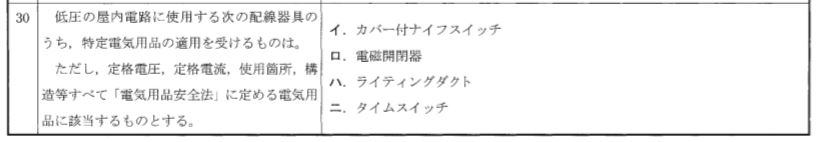 30
低圧の屋内電路に使用する次の配線器具の
うち，特定電気用品の適用を受けるものは。
ただし，定格電圧，定格電流，使用箇所，構
造等すべて「電気用品安全法」に定める電気用
品に該当するものとする。
イ．カバー付ナイフスイッチ
ロ．電磁開閉器
ハ．ライティングダクト
ニ．タイムスイッチ